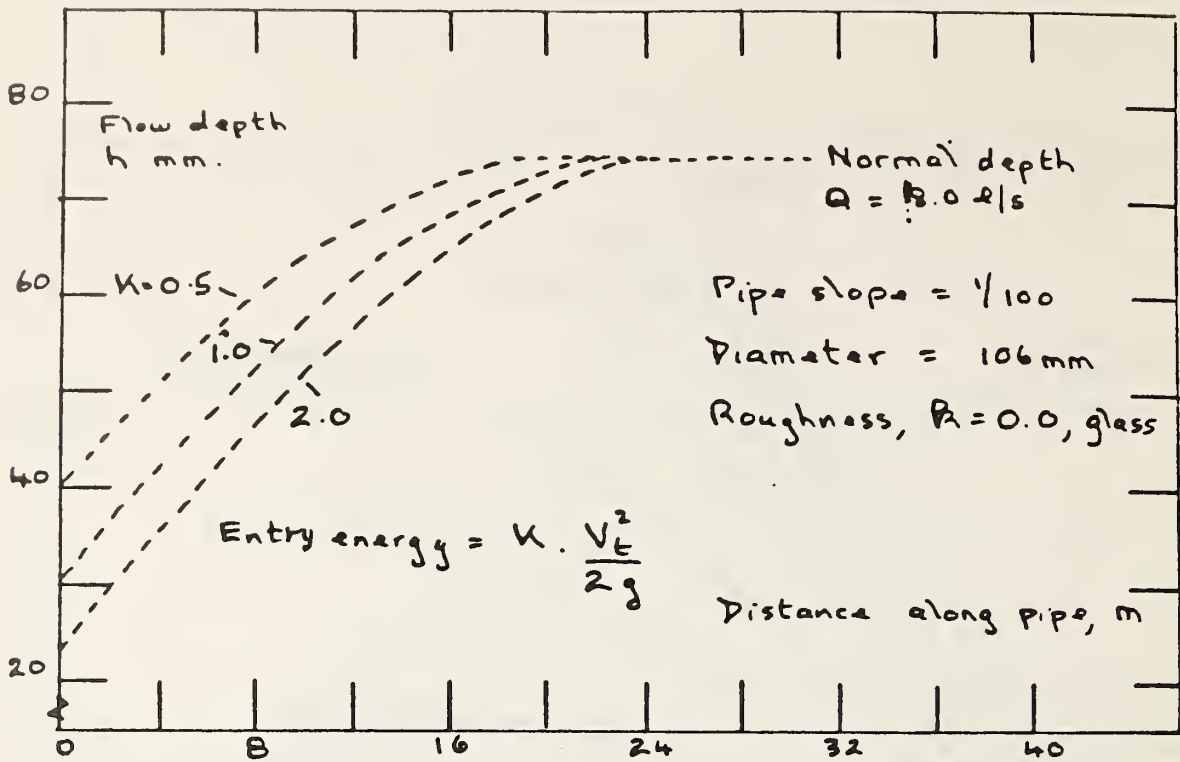 80
Flow depth
h mm.
Normal depth
Q = 8.0 l/s
60
K=0.5
1.0
2.0
Pipe slope = 1/100
Diameter = 106mm
Roughness, k = 0.0, glass
40
Entry energy = K . V_t^2 / 2g
Distance along pipe, m
20
0 8 16 24 32 40